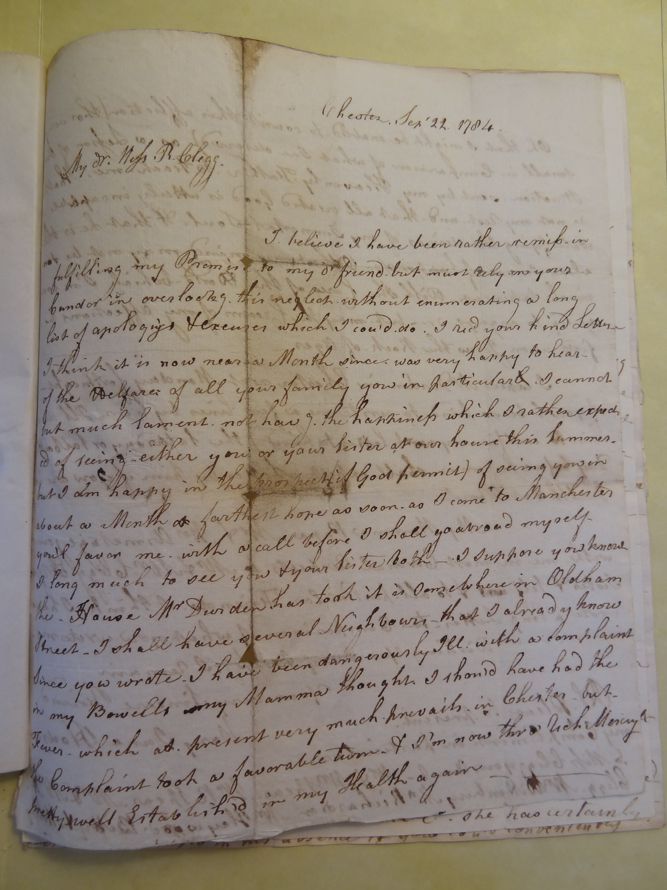 Chester. Sepr 22 1784.
My dr. Miss R. Clegg.
I believe I have been rather remiss in
fulfilling my Promise to my dr friend but must rely on your
Candor in overlookg. this neglect without enumerating a long
list of apologys & excuses which I could do. I recd your kind Letter
I think it is now near a Month since was very happy to hear
of the Welfare of all your family you in particular & I cannot
but much lament not havg. the happiness which I rather expect
ed of seeing either you or your Sister at our house this Summer
but I am happy in the prospect (if God permit) of seeing you in
about a Month at farthest hope as soon as I come to Manchester
you'l favor me with a call before I shall go abroad myself
I long much to see you & your Sister both - I suppose you know
the House Mr Durden has took it is Somewhere in Oldham
Street - I shall have several Neighbours that I already know
Since you wrote I have been dangerously Ill with a complaint
in my Bowells my Mamma thought I should have had the
Fever which at present very much prevails in Chester but
the Complaint took a favorable turn & I'm now thro' Rich Mercy
pretty well Establish'd in my Health again
she has certainly
his absence if you could conveniently